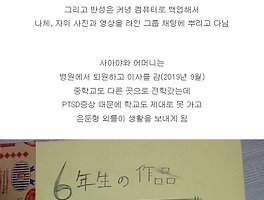 그리고 반성은 커녕 컴퓨터로 백업해서
나체, 자위 사진과 영상을 라인 그룹 채팅에 뿌리고 다님
사야야와 어머니는
병원에서 퇴원하고 이사를 감(2019년 9월)
중학교도 다른 곳으로 전학갔는데
PTSD증상 때문에 학교도 제대로 못 가고
은둔형 외톨이 생활을 보내게 됨
6年生の作品